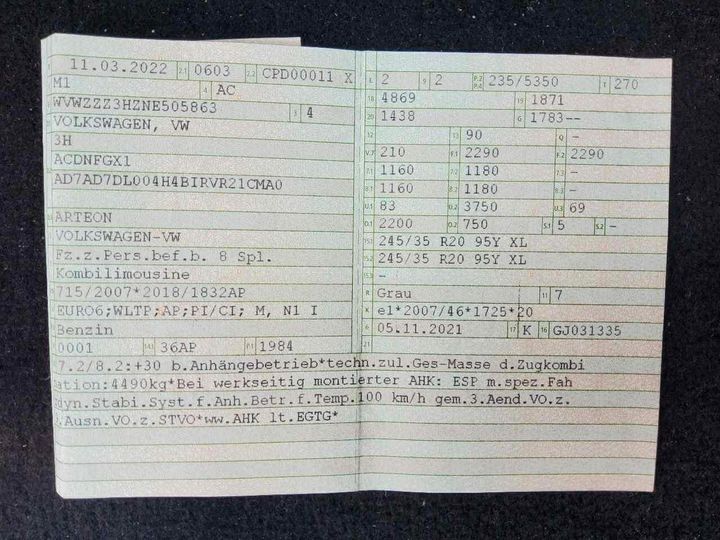 11.03.2022 2.1 0603 2.2 CPD00011 X
M1 4 AC
WVWZZZ3HZNE505863 3 4
VOLKSWAGEN, VW
3H
ACDNFGX1
AD7AD7DL004H4BIRVR21CMA0
ARTEON
VOLKSWAGEN-VW
Fz.z.Pers.bef.b. 8 Spl.
Kombilimousine
715/2007*2018/1832AP
EURO6;WLTP;AP;PI/CI; M, N1 I
Benzin
0001 14.1 36AP P.1 1984
L 2 9 2 P.2 P.4 235/5350 T 270
18 4869 19 1871
20 1438 G 1783--
12 13 90 Q -
V.7 210 F.1 2290 F.2 2290
7.1 1160 7.2 1180 7.3 -
8.1 1160 8.2 1180 8.3 -
U.1 83 U.2 3750 U.3 69
O.1 2200 O.2 750 S.1 5 S.2 -
15.1 245/35 R20 95Y XL
15.2 245/35 R20 95Y XL
15.3 -
R Grau 11 7
K e1*2007/46*1725*20
6 05.11.2021 17 K 16 GJ031335
21
7.2/8.2:+30 b.Anhängebetrieb*techn.zul.Ges-Masse d.Zugkombi
ation:4490kg*Bei werkseitig montierter AHK: ESP m.spez.Fah
dyn.Stabi.Syst.f.Anh.Betr.f.Temp.100 km/h gem.3.Aend.VO.z.
.Ausn.VO.z.STVO*ww.AHK lt.EGTG*